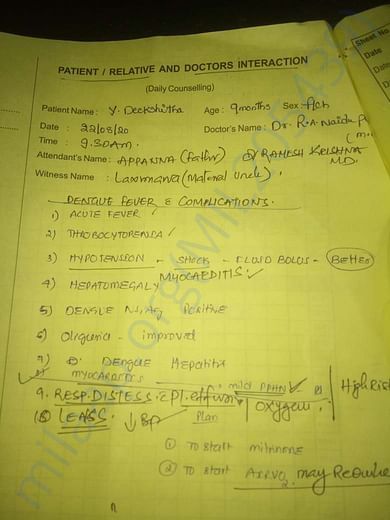 Sheet No.
Date
PATIENT / RELATIVE AND DOCTORS INTERACTION
(Daily Counselling)
Patient Name : Y. Deekshitha Age : 9months Sex : Fch
Date : 22/08/20 Doctor's Name : Dr. R.A. Naidu
Time : 9.30Am. Dr RAMESH KRISHNA
Attendant's Name : APPANNA (Father) MD.
Witness Name : Laxmana (Maternal uncle).
DENGUE FEVER & COMPLICATIONS.
1) ACUTE FEVER
2) THROBOCYTOPENIA
3) HYPOTENSION - SHOCK - FLUID BOLUS -
MYOCARDITIS
4) HEPATOMEGALY
5) DENGUE NS1 Ag POSITIVE
6) Oliguria - improved
7) DENGUE Hepatitis
8) MYOCARDITIS, mild PPHN
9. RESP. DISTESS. Pl. effusion oxygen. High Ris
10 LEASS. ↓ BP Plan
① To start milrinone
② To start may Require
milaap.org